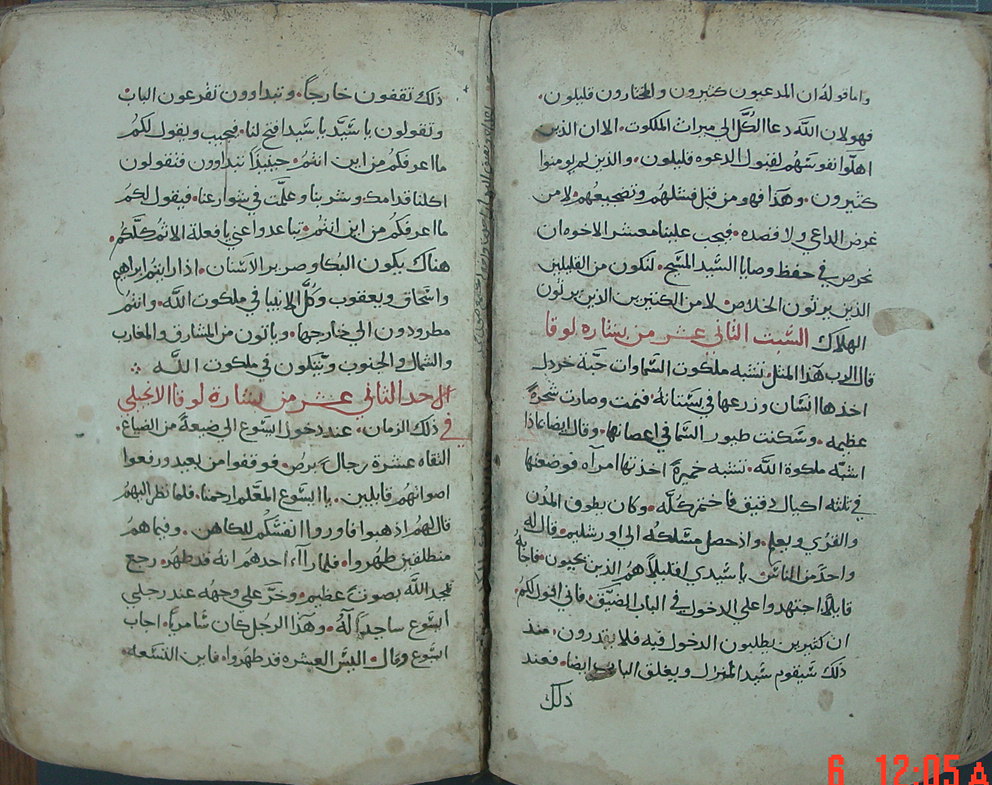 واما قوله ان المدعيون كثيرون والمختارون قليلون.
فهو لان الله دعا الكل الي ميراث الملكوت. الا ان الذين
اهلوا نفوسهم لقبول الدعوه قليلون. والذين لم يومنوا
كثيرون. وهذا فهو من قبل فشلهم وتضجيعهم. لا من
غرض الداعي ولا قصده. فيجب علينا معشر الاخوه ان
نحرص في حفظ وصايا السيد المسيح. لنكون من القليلين
الذين يرثون الخلاص. لا من الكثيرين الذين يرثون
الهلاك السبت الثاني عشر من بشاره لوقا
قال الرب هذا المثل. تشبه ملكوت السماوات حبة خردل
اخذها انسان وزرعها في بستانه. فنمت وصارت شجرة
عظيمه. وسكنت طيور السما في اغصانها. وقال ايضا بماذا
اشبه ملكوة الله. تشبه خميرة اخذتها امرآه فوضعتها
في تلته اكيال دقيق فاختمر كله. وكان يطوف المدن
والقري ويعلم. واذ حصل مسلكه الي اورشليم. قال له
واحد من الناس. يا سيدي اقليلاً هم الذين ينجيون. فاجابه
قايلاً. اجتهدوا علي الدخول في الباب الضيق. فاني اقول لكم
ان كثيرين يطلبون الدخول فيه فلا يقدرون. منذ
ذلك سيقوم سيد المنزل ويغلق الباب ايضا. فعند
ذلك
ذلك تقفون خارجاً. وتبداوون تقرعون الباب
وتقولون يا سيد يا سيد افتح لنا. فيجيب ويقول لكم
ما اعرفكم من اين انتم. حينيذٍ تبداوون فتقولون
اكلنا قدامك وشربنا وعلمت في شوارعنا. فيقول لكم
ما اعرفكم من اين انتم. تباعدوا عني يا فعلة الاثم كلكم.
هناك يكون البكا وصرير الاسنان. اذا رايتم ابراهيم
واسحاق ويعقوب وكل الانبيا في ملكوت الله. وانتم
مطرودون الي خارجها. وياتون من المشارق والمغارب
والشمال والجنوب ويتكون في ملكوت الله
الاحد الثاني عشر من بشارة لوقا الانجيلي
في ذلك الزمان. عند دخول ايسوع الي ضيعة من الضياع.
التقاه عشرة رجال برص. فوقفوا من بعيد ورفعوا
اصواتهم قايلين. يا ايسوع المعلم ارحمنا. فلما نظر اليهم
قال لهم اذهبوا فاوروا انفسكم للكاهن. وفيما هم
منطلقين طهروا. فلما رآء احدهم انه قد طهر. رجع
يمجد الله بصوت عظيم. وخر علي وجهه عند رجلي
ايسوع ساجداً له. وهذا الرجل كان سامرياً. اجاب
ايسوع وقال. اليس العشره قد طهروا. فاين التسعه.
6 12:05 A